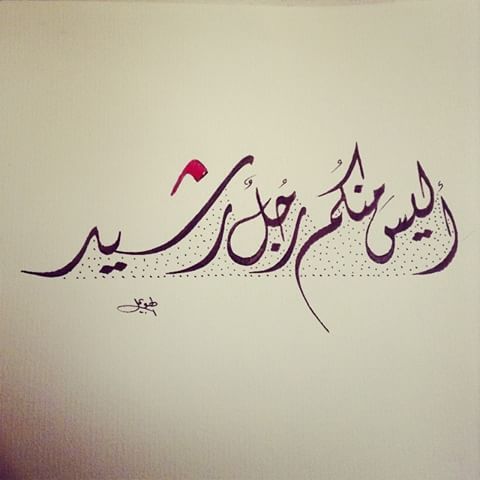 أليسَ مِنكُم رَجُلُ رشيد